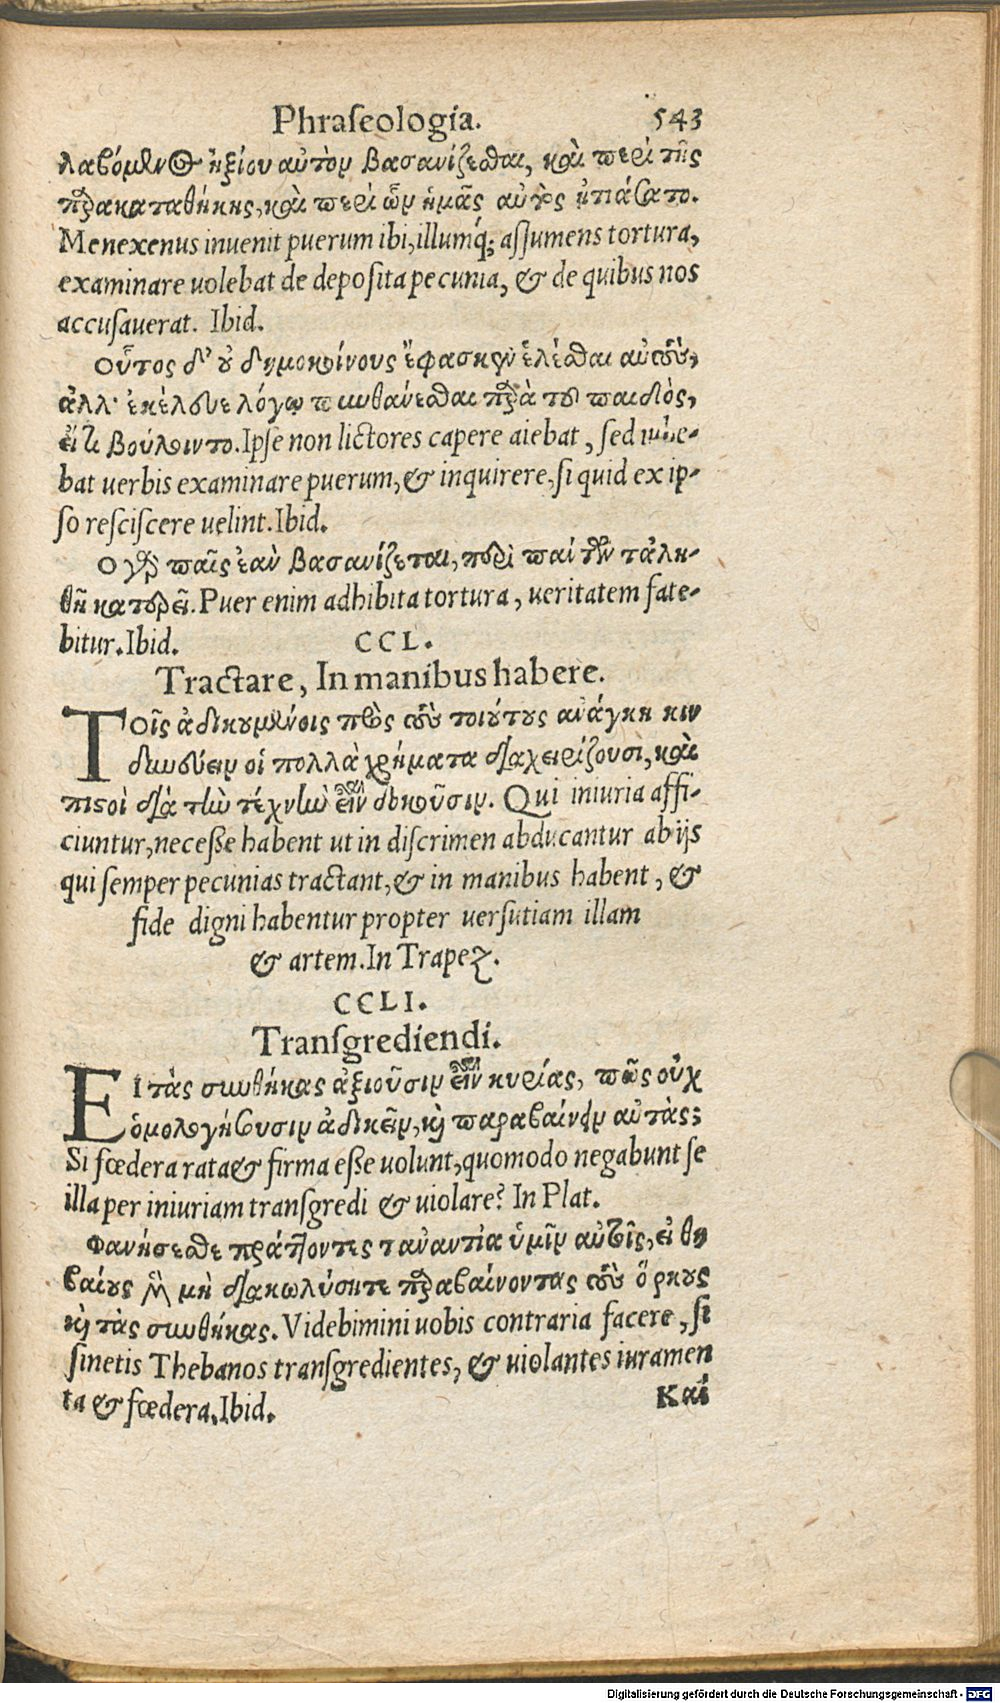 Phraſeologia. 543
λαβόμενος ἠξίου αὐτὸν βασανίζεσθαι, καὶ περὶ τῆς
παρακαταθήκης, καὶ περὶ ὧν ἡμᾶς αὐτὸς ᾐτιάσατο.
Menexenus inuenit puerum ibi, illumq́; aſſumens tortura,
examinare uolebat de depoſita pecunia, & de quibus nos
accuſauerat. Ibid.
Οὗτος δ' οὐ δημοκοίνους ἔφασκεν ἑλέσθαι αὐτοὺς,
ἀλλ' ἐκέλευε λόγῳ πυνθάνεσθαι παρὰ τοῦ παιδὸς,
εἴ τι βούλοιντο. Ipſe non lictores capere aiebat, ſed iube-
bat uerbis examinare puerum, & inquirere, ſi quid ex ip-
ſo reſciſcere uelint. Ibid.
Ο γὰρ παῖς ἐὰν βασανίζεται, περὶ πάντων τἀλη-
θῆ κατερεῖ. Puer enim adhibita tortura, ueritatem fate-
bitur. Ibid. CCL.
Tractare, In manibus habere.
ΤΟῖς ἀδικουμένοις πρὸς τοὺς τοιούτους ἀνάγκη κιν
δυνεύειν οἱ πολλὰ χρήματα διαχειρίζουσι, καὶ
πιστοὶ διὰ τὴν τέχνην εἶναι δοκοῦσιν. Qui iniuria affi-
ciuntur, neceſſe habent ut in diſcrimen abducantur ab ijs
qui ſemper pecunias tractant, & in manibus habent, &
fide digni habentur propter uerſutiam illam
& artem. In Trapez.
CCLI.
Tranſgrediendi.
ΕΙ τὰς συνθήκας ἀξιοῦσιν εἶναι κυρίας, πῶς οὐχ
ὁμολογήσουσιν ἀδικεῖν, καὶ παραβαίνειν αὐτὰς;
Si fœdera rata & firma eſſe uolunt, quomodo negabunt ſe
illa per iniuriam tranſgredi & uiolare? In Plat.
Φανήσεσθε πράττοντες τἀναντία ὑμῖν αὐτοῖς, εἰ θη
βαίους μὲν μὴ διακωλύσητε παραβαίνοντας τοὺς ὅρκους
καὶ τὰς συνθήκας. Videbimini uobis contraria facere, ſi
ſinetis Thebanos tranſgredientes, & uiolantes iuramen
ta & fœdera. Ibid. Καὶ
Digitalisierung gefördert durch die Deutsche Forschungsgemeinschaft - DFG